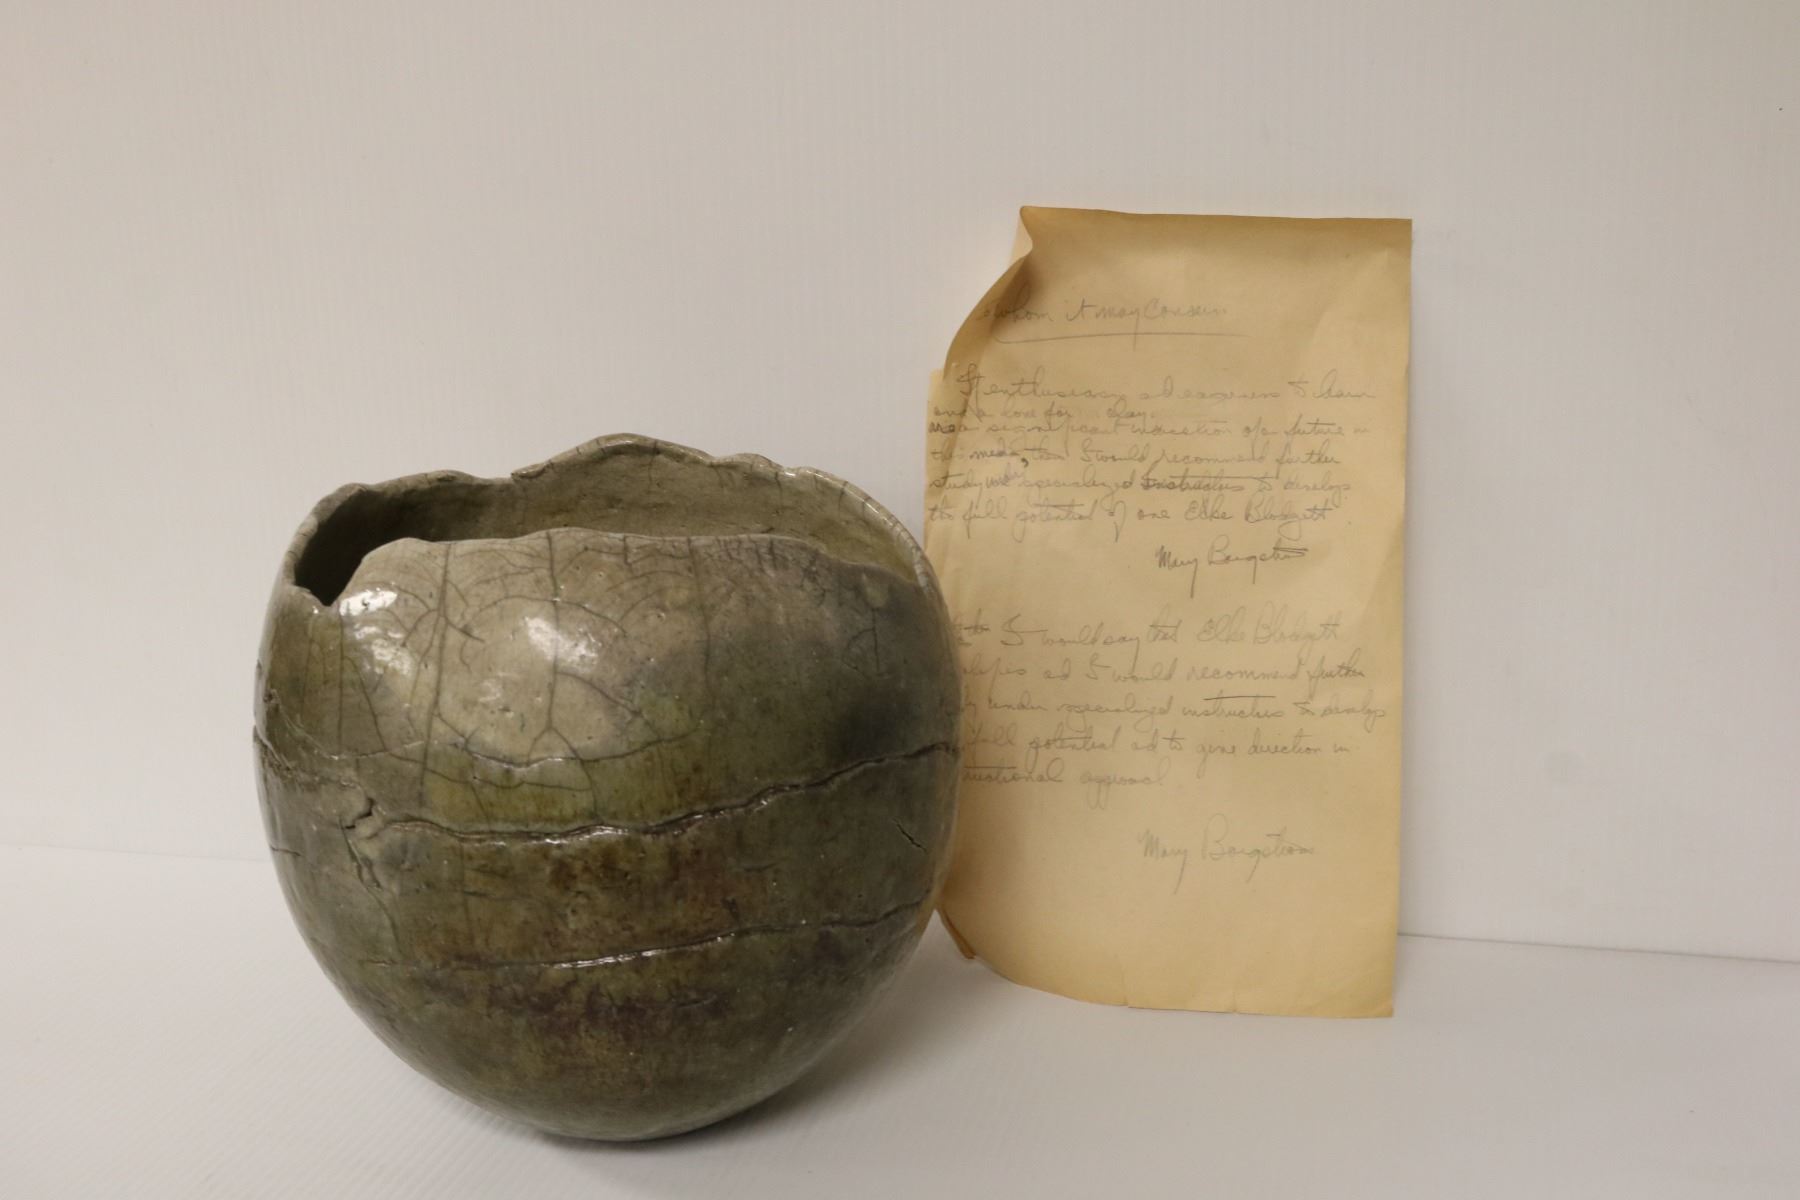 whom it may Concern
If enthusiasm ad eagerness to learn
and a love for clay
are a significant indication of a future in
this media, then I would recommend further
study under specialized instructors to develop
the full potential of one Elke Blodgett
Mary Borgstrom
I would say that Elke Blodgett
ad I would recommend further
under specialized instructors to develop
full potential ad to give direction in
approach
Mary Borgstrom